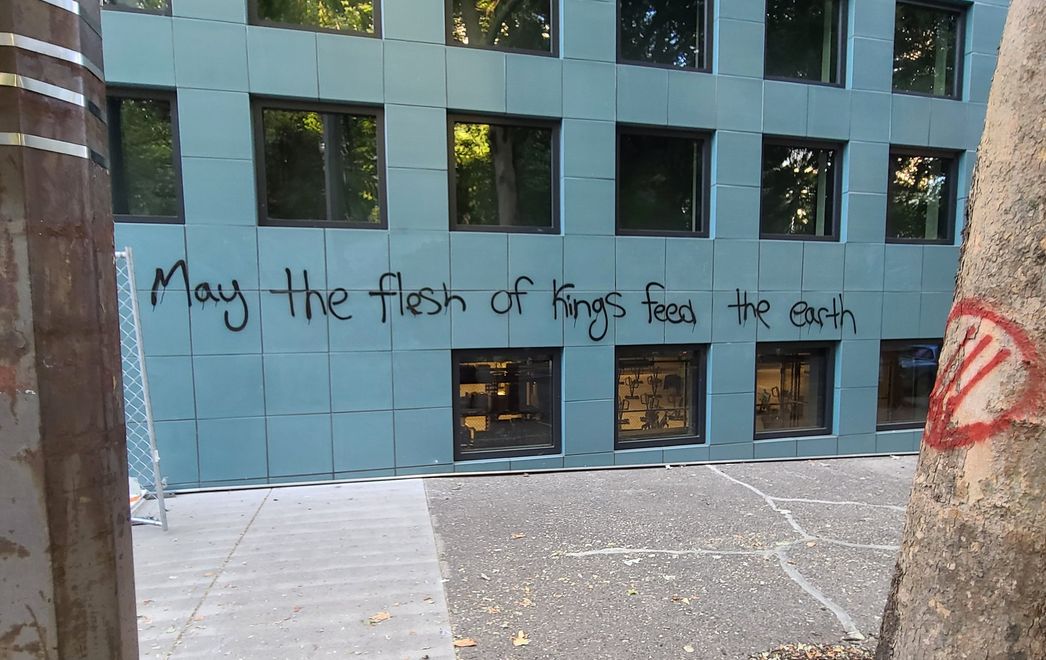 May the flesh of kings feed the earth